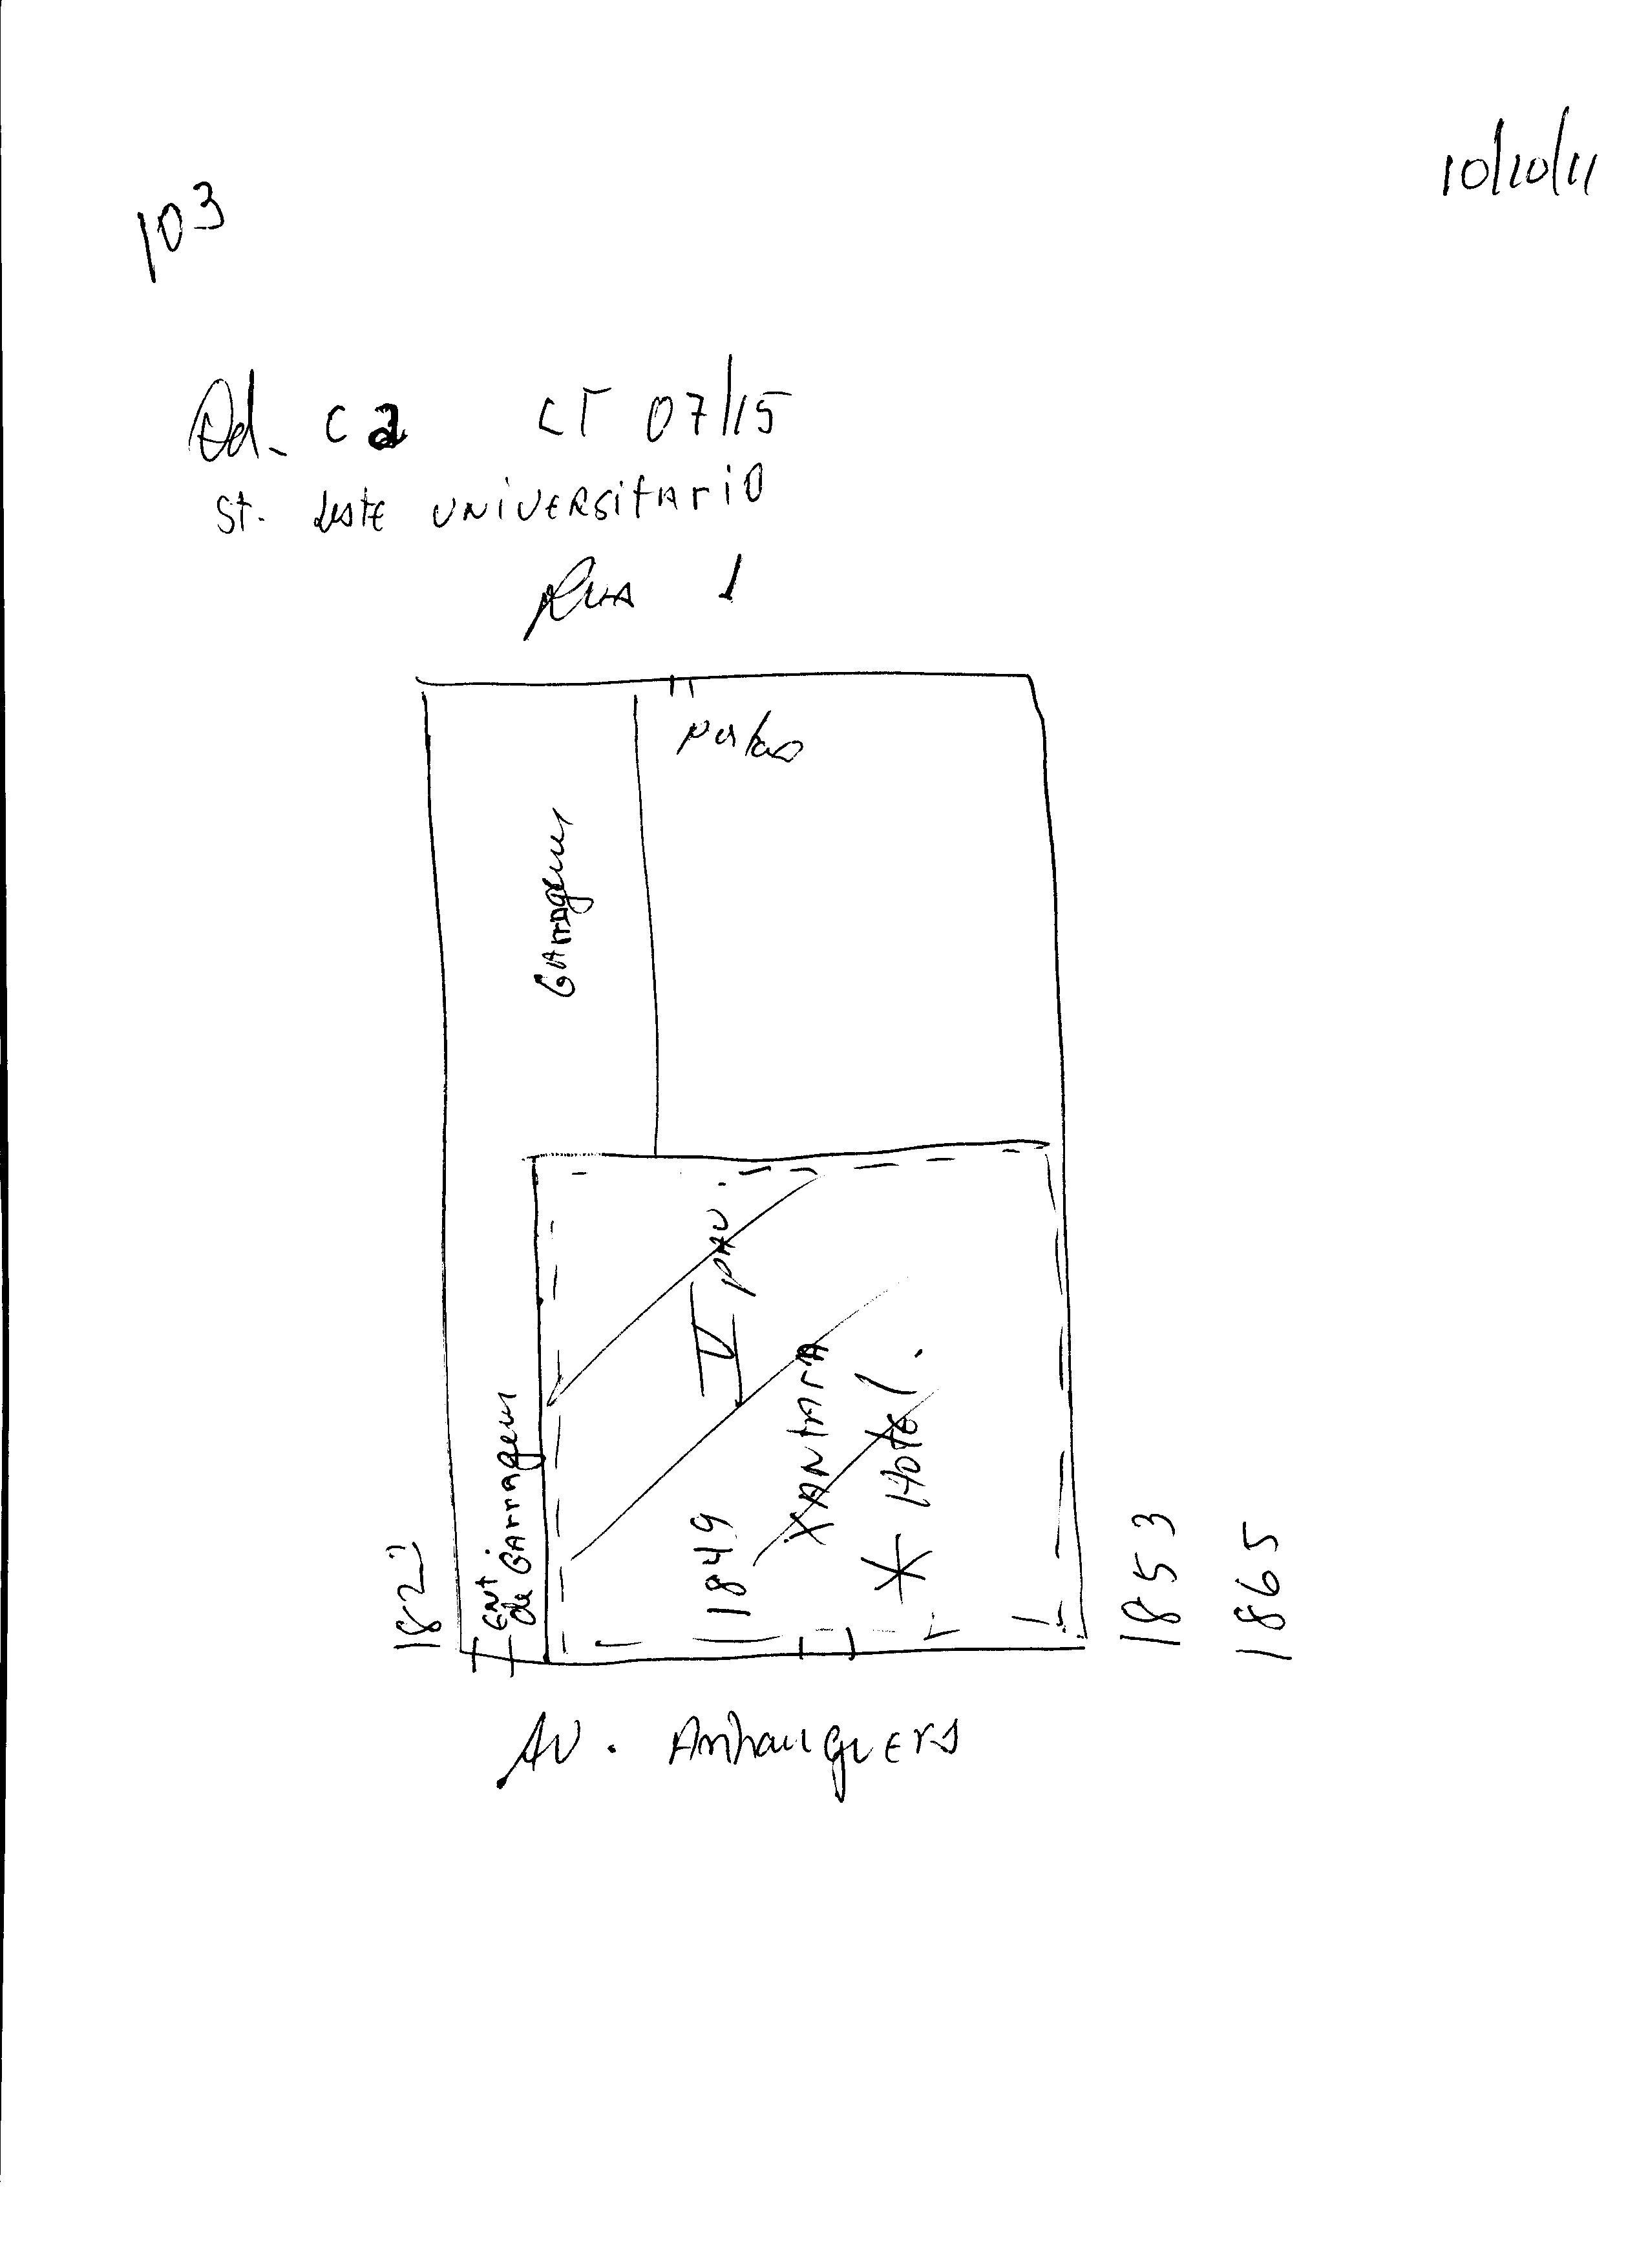 10/10/11
103
Qd. C2 LT 07/15
St. Leste UNIVERSITARIO
RUA 1
portao
GArragem
PAV.
XANTARA
* Hotel.
1849
Ent. de GArragem
1853
1865
AV. Anhanguera